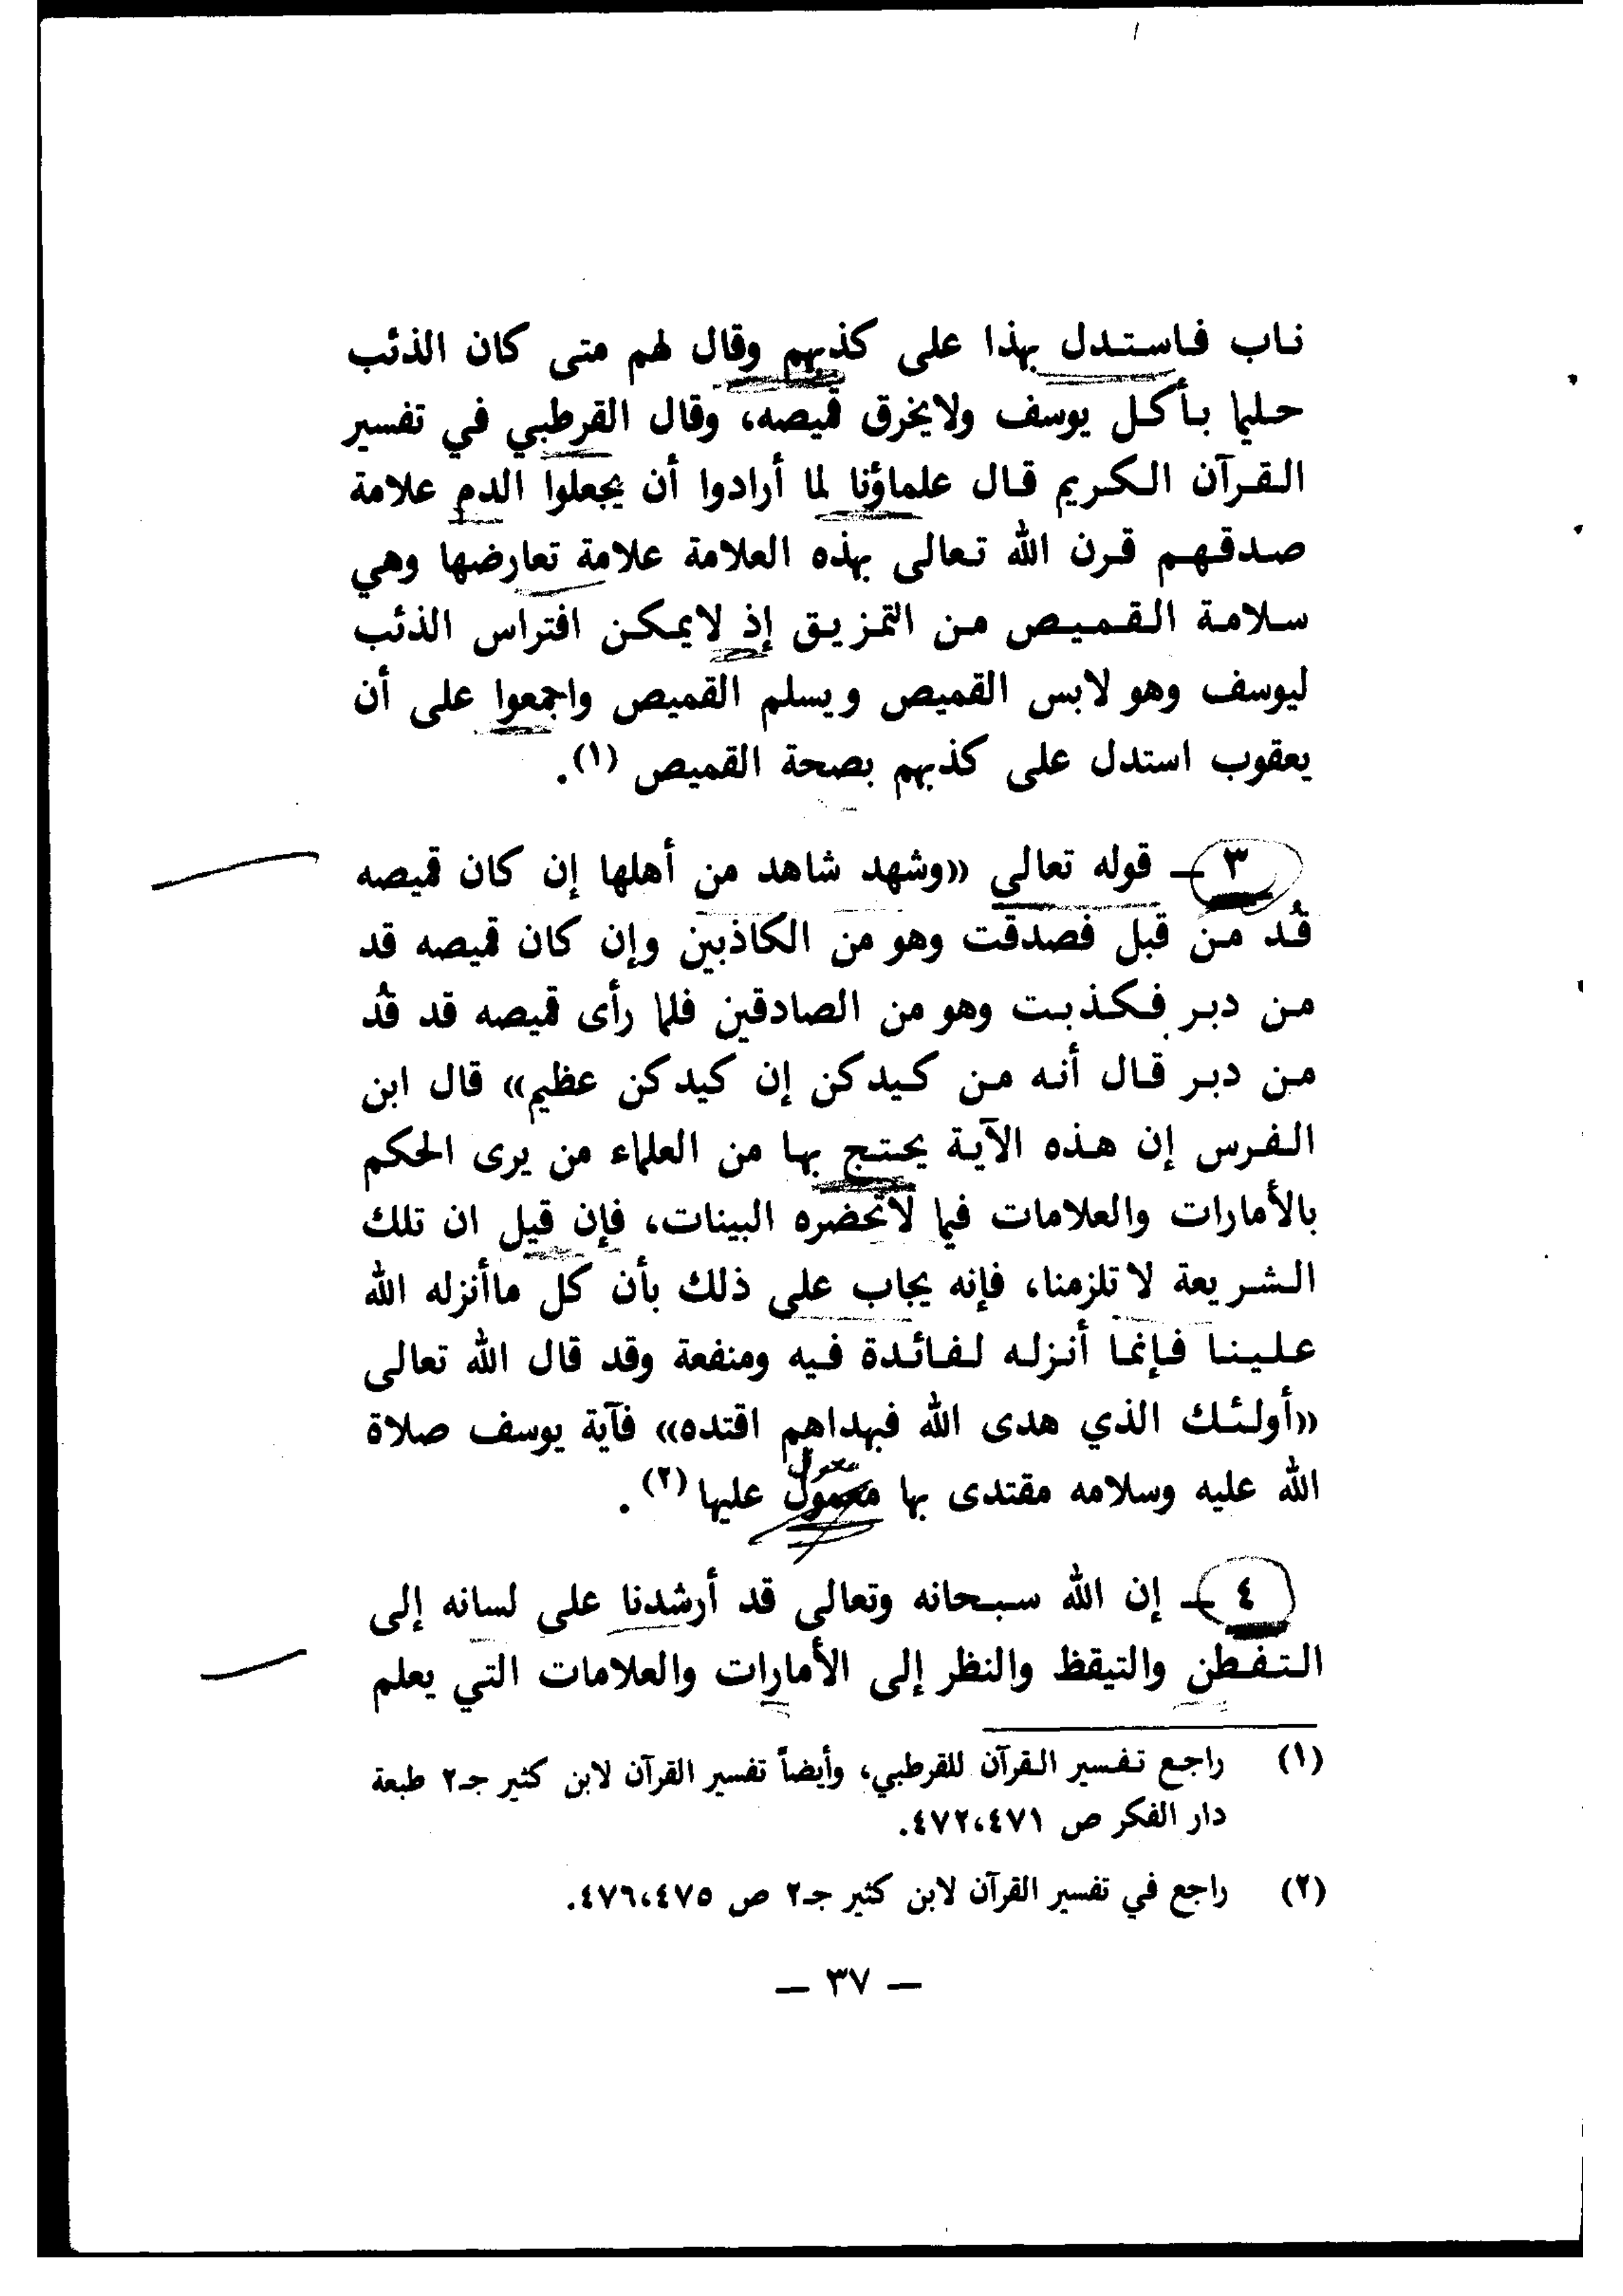 ناب فاستدل بهذا على كذبهم وقال لهم متى كان الذئب
حليما بأكل يوسف ولايخرق قميصه، وقال القرطبي في تفسير
القرآن الكريم قال علماؤنا لما أرادوا أن يجعلوا الدم علامة
صدقهم قرن الله تعالى بهذه العلامة علامة تعارضها وهي
سلامة القميص من التمزيق إذ لايمكن افتراس الذئب
ليوسف وهو لابس القميص ويسلم القميص واجمعوا على أن
يعقوب استدل على كذبهم بصحة القميص (١).
٣ ـ قوله تعالى «وشهد شاهد من أهلها إن كان قميصه
قُد من قبل فصدقت وهو من الكاذبين وإن كان قميصه قد
من دبر فكذبت وهو من الصادقين فلما رأى قميصه قد قُد
من دبر قال أنه من كيدكن إن كيدكن عظيم» قال ابن
الفرس إن هذه الآية يحتج بها من العلماء من يرى الحكم
بالأمارات والعلامات فيما لاتحضره البينات، فإن قيل ان تلك
الشريعة لا تلزمنا، فإنه يجاب على ذلك بأن كل ماأنزله الله
علينا فإنما أنزله لفائدة فيه ومنفعة وقد قال الله تعالى
«أولئك الذي هدى الله فبهداهم اقتده» فآية يوسف صلاة
معول
الله عليه وسلامه مقتدى بها معمول عليها (٢).
٤ ـ إن الله سبحانه وتعالى قد أرشدنا على لسانه إلى
التفطن والتيقظ والنظر إلى الأمارات والعلامات التي يعلم
(١) راجع تفسير القرآن للقرطبي، وأيضاً تفسير القرآن لابن كثير جـ٢ طبعة
دار الفكر ص ٤٧٢،٤٧١.
(٢) راجع في تفسير القرآن لابن كثير جـ٢ ص ٤٧٦،٤٧٥.
— ٣٧ —